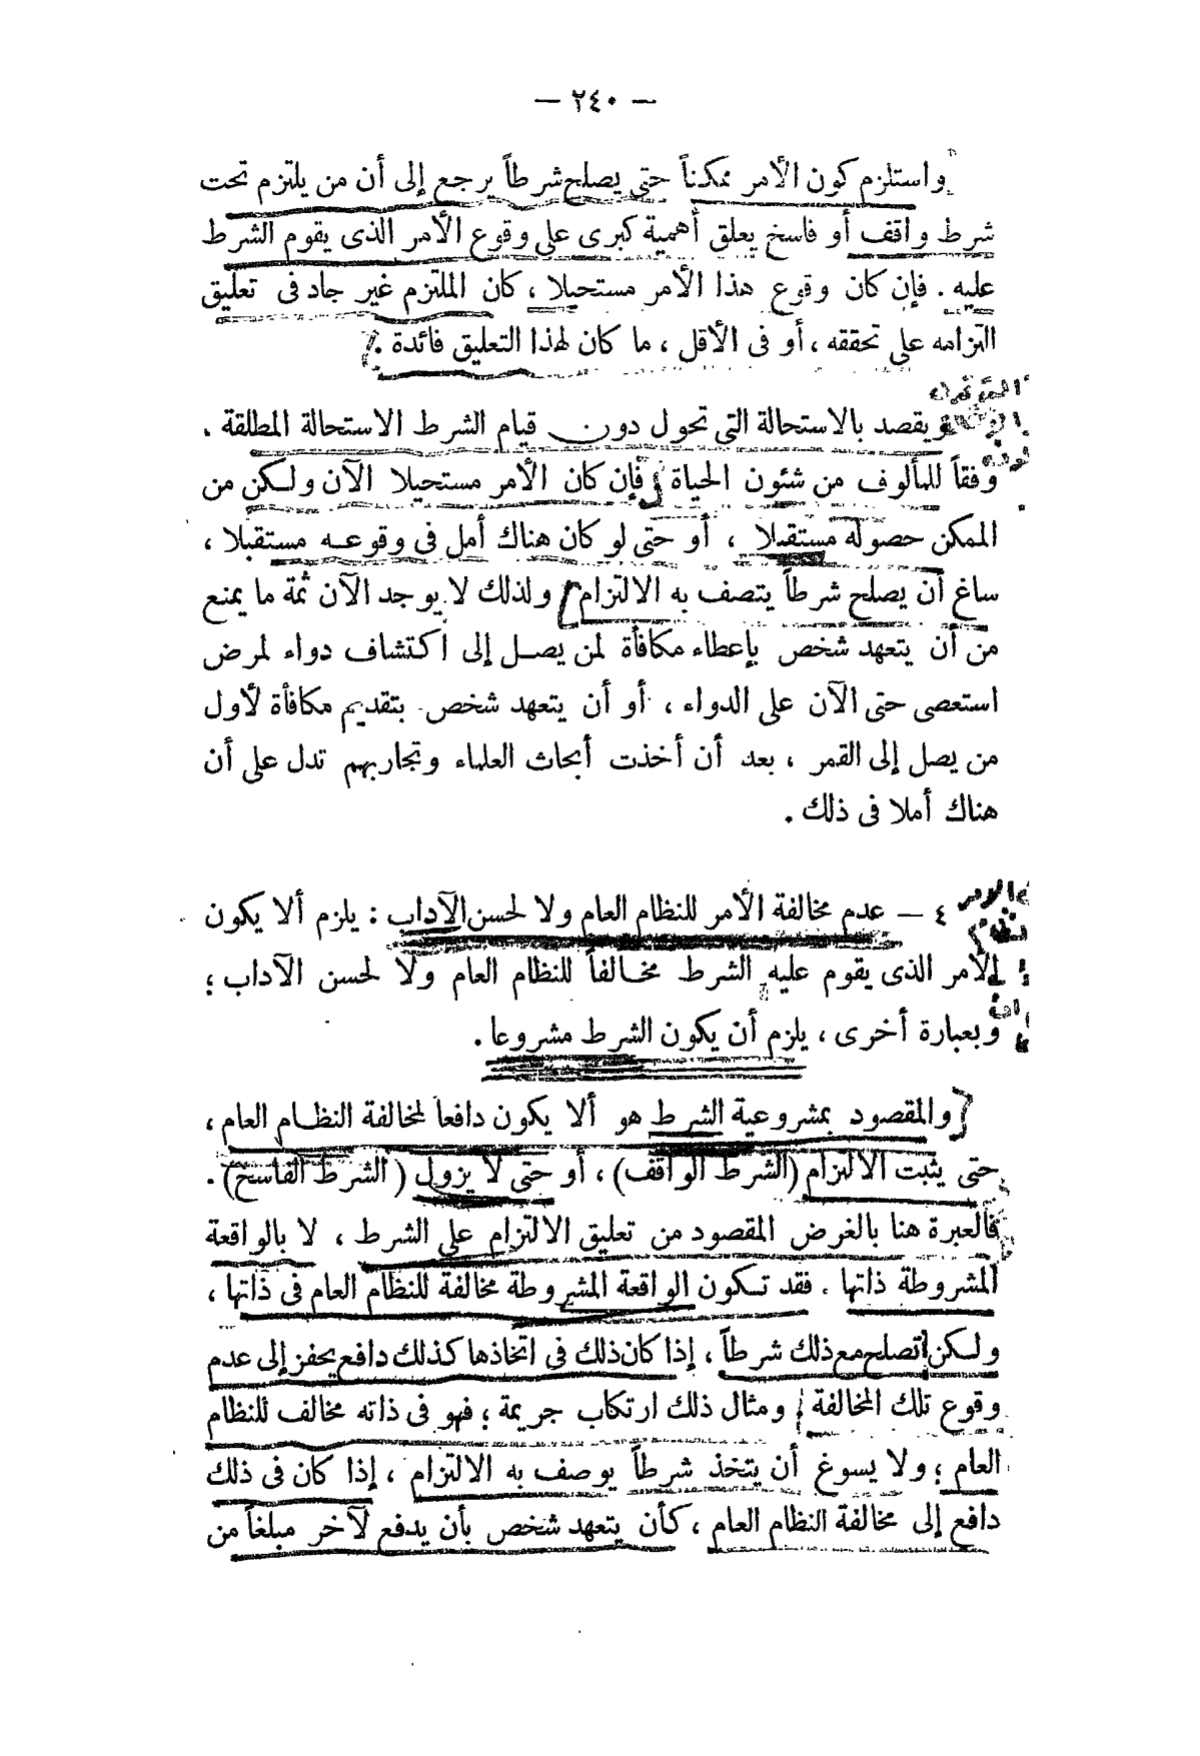 — ٢٤٠ —
واستلزم كون الأمر ممكناً حتى يصلح شرطاً يرجع إلى أن من يلتزم تحت
شرط واقف أو فاسخ يعلق أهمية كبرى على وقوع الأمر الذى يقوم الشرط
عليه . فإن كان وقوع هذا الأمر مستحيلا ، كان الملتزم غير جاد فى تعليق
التزامه على تحققه ، أو فى الأقل ، ما كان لهذا التعليق فائدة .
ويقصد بالاستحالة التى تحول دون قيام الشرط الاستحالة المطلقة .
وفقاً للمألوف من شئون الحياة فإن كان الأمر مستحيلا الآن ولكن من
الممكن حصوله مستقبلا ، أو حتى لو كان هناك أمل فى وقوعه مستقبلا ،
ساغ أن يصلح شرطاً يتصف به الالتزام ولذلك لا يوجد الآن ثمة ما يمنع
من أن يتعهد شخص بإعطاء مكافأة لمن يصل إلى اكتشاف دواء لمرض
استعصى حتى الآن على الدواء ، أو أن يتعهد شخص بتقديم مكافأة لأول
من يصل إلى القمر ، بعد أن أخذت أبحاث العلماء وتجاربهم تدل على أن
هناك أملا فى ذلك .
٤ — عدم مخالفة الأمر للنظام العام ولا لحسن الآداب : يلزم ألا يكون
الأمر الذى يقوم عليه الشرط مخالفاً للنظام العام ولا لحسن الآداب ؛
وبعبارة أخرى ، يلزم أن يكون الشرط مشروعا .
والمقصود بمشروعية الشرط هو ألا يكون دافعاً لمخالفة النظام العام ،
حتى يثبت الالتزام (الشرط الواقف) ، أو حتى لا يزول (الشرط الفاسخ) .
فالعبرة هنا بالغرض المقصود من تعليق الالتزام على الشرط ، لا بالواقعة
المشروطة ذاتها . فقد تكون الواقعة المشروطة مخالفة للنظام العام فى ذاتها ،
ولكن تصلح مع ذلك شرطاً ، إذا كان ذلك فى اتخاذها كذلك دافع يحفز إلى عدم
وقوع تلك المخالفة ومثال ذلك ارتكاب جريمة ؛ فهو فى ذاته مخالف للنظام
العام ؛ ولا يسوغ أن يتخذ شرطاً يوصف به الالتزام ، إذا كان فى ذلك
دافع إلى مخالفة النظام العام ، كأن يتعهد شخص بأن يدفع لآخر مبلغاً من